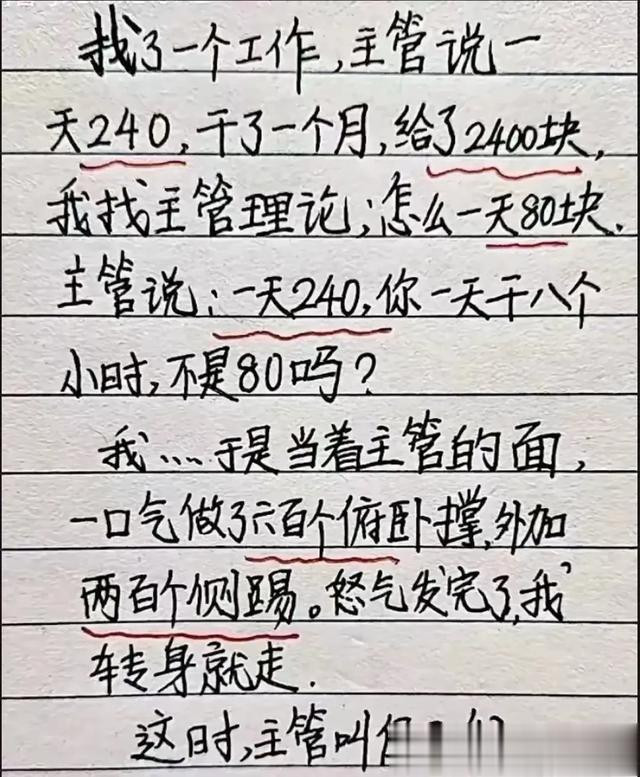 找了一个工作,主管说一
天240,干了一个月,给了2400块,
我找主管理论;怎么一天80块.
主管说:一天240,你一天干八个
小时,不是80吗?
我....于是当着主管的面,
一口气做了六百个俯卧撑,外加
两百个侧踢。怒气发完了,我
转身就走.
这时,主管叫